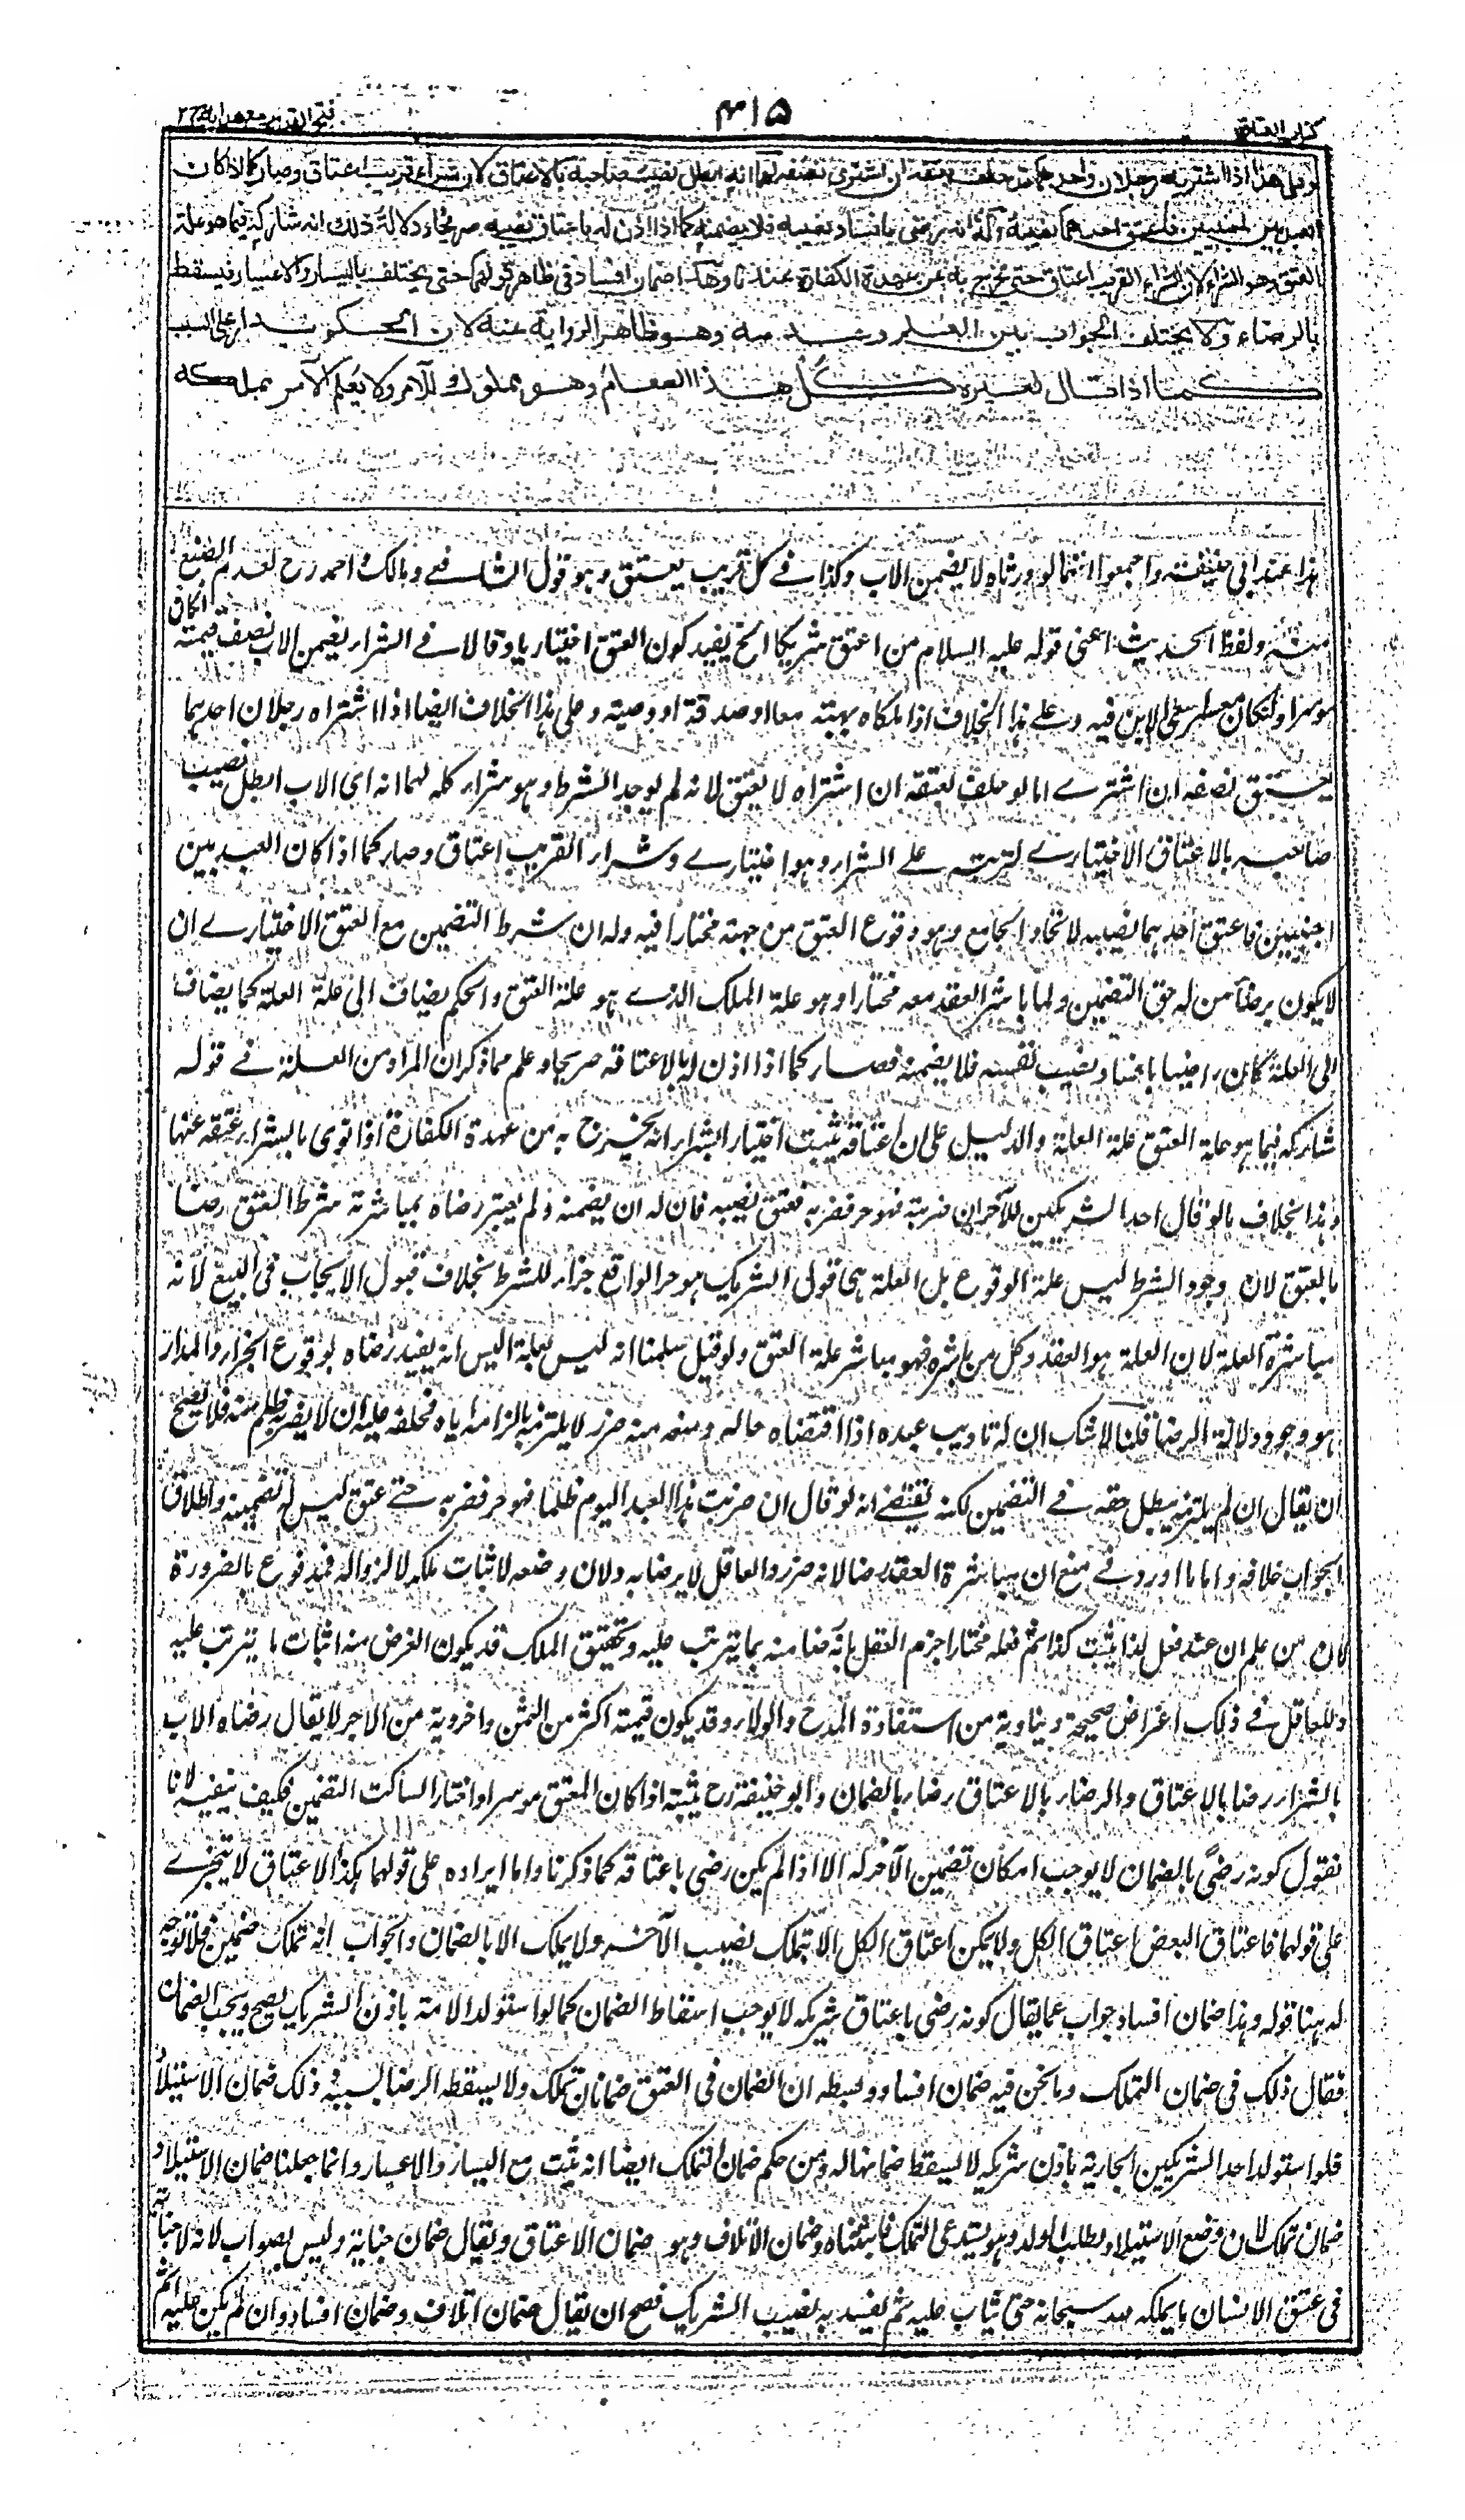 كتاب العتاق
٤١٥
فتح القدير مع هداية ج٢
وعلى هذا اذا اشتراه رجلان واحدهما قد حلف بعتقه ان اشترى نصفه لهما انه ابطل نصيب صاحبه بالاعتاق لان شراء القريب اعتاق وصار كما اذا كان
العبد بين اجنبيين فاعتق احدهما نصيبه وله انه رضى بافساد نصيبه فلا يضمنه كما اذا اذن له باعتاق نصيبه صريحا ودلالة ذلك انه شاركه فيما هو علة
العتق وهو الشراء لان شراء القريب اعتاق حتى يخرج به عن عهدة الكفارة عندنا وهذا ضمان افساد فى ظاهر قولهما حتى يختلف باليسار والاعسار فيسقط
بالرضاء ولا يختلف الجواب بين العلم وعدمه وهو ظاهر الرواية عنه لان الحكم يدار على السبب
كما اذا قال لغيره كل هذا الطعام وهو مملوك للآمر ولا يعلم الآمر بملكه
هذا عند ابى حنيفة واجمعوا انهما لو ورثاه لا يضمن الاب وكذا فے كل قريب يعتق وهو قول الشافعے ومالك واحمد رح لعدم الصنع
منه ولفظ الحديث اعنى قوله عليه السلام من اعتق شريكا الخ يفيد كون العتق اختياريا وقالا فے الشراء يضمن الاب نصف قيمته ان كان
موسرا وان كان معسرا سعى الابن فيه وعلے هذا الخلاف اذا ملكاه بهبة معا او صدقة او وصية وعلى هذا الخلاف ايضا اذا اشتراه رجلان احدهما
يعتق نصفه ان اشترے اما لو حلف بعتقه ان اشتراه لا يعتق لانه لم يوجد الشرط وهو شراء كله لهما انه اى الاب ابطل نصيب
صاحبه بالاعتاق الاختيارے لترتبه علے الشراء وهو اختيارے وشراء القريب اعتاق وصار كما اذا كان العبد بين
اجنبيين فاعتق احدهما نصيبه لاتحاد الجامع وهو وقوع العتق من جهته مختارا فيه وله ان شرط التضمين مع العتق الاختيارے ان
لا يكون برضا من له حق التضمين ولما باشر العقد معه مختارا وهو علة الملك الذے هو علة العتق والحكم يضاف الى علة العلة كما يضاف
الى العلة كان راضيا بافساد نصيب نفسه فلا يضمنه فصار كما اذا اذن له بالاعتاقه صريحا وعلم مما ذكر ان المراد من العلة فے قوله
شاركه فيما هو علة العتق علة العلة والدليل على ان اعتاقه يثبت اختيار الشراء انه يخرج به من عهدة الكفارة اذا نوى بالشراء عتقه عنها
وهذا بخلاف ما لو قال احد الشريكين للآخر ان ضربته فهو حر فضربه فعتق نصيبه فان له ان يضمنه ولم يعتبر رضاه بمباشرة شرط العتق رضا
بالعتق لان وجود الشرط ليس علة الوقوع بل العلة هى قول الشريك هو حر الواقع جزاء للشرط بخلاف قبول الايجاب فى البيع لانه
مباشرة العلة لان العلة هو العقد وكل من باشره فهو مباشر علة العتق ولو قيل سلمنا انه ليس بعلة اليس انه يفيد رضاه لوقوع الجزاء والمدار
هو وجود دلالة الرضا قلنا لا شك ان له تاديب عبده اذا اقتضاه حاله ومنعه منه ضرر لا يلتزمه بالزامه اياه فحلفه عليه ان لا يضربه ظلم منه فلا يصح
ان يقال ان لم يلتزمه يبطل حقه فے التضمين لكنه يقتضے انه لو قال ان ضربت هذا العبد اليوم ظلما فهو حر فضربه حتے عتق ليس له تضمينه واطلاق
الجواب خلافه واما ما اورد فے منع ان مباشرة العقد رضا لانه ضرر والعاقل لا يرضا به ولان وضعه لاثبات ملكه لا لزواله فمدفوع بالضرورة
لان من علم ان عند فعل كذا يثبت كذا ثم فعله مختارا جزم العقل بانه رضا منه بما يترتب عليه وتحقيق الملك قد يكون الغرض منه اثبات ما يترتب عليه
وللعاقل فے ذلك اغراض صحيحة دنياوية من استفادة المدح والولاء وقد يكون قيمته اكثر من الثمن واخروية من الاجر لا يقال رضاه الاب
بالشراء رضا بالاعتاق والرضاء بالاعتاق رضاء بالضمان وابو حنيفة رح يثبته اذا كان المعتق موسرا واختار الساكت التضمين فكيف ينفيه لانا
نقول كونه رضىً بالضمان لا يوجب امكان تضمين الآخر له الا اذا لم يكن رضى باعتاقه كما ذكرنا واما ايراده على قولهما هكذا الاعتاق لا يتجزے
على قولهما فاعتاق البعض اعتاق الكل ولا يمكن اعتاق الكل الا بتملك نصيب الآخر ولا يملك الا بالضمان والجواب انه تملك ضمين فلا توجه
له هنا قوله وهذا ضمان افساد جواب عما يقال كونه رضى باعتاق شريكه لا يوجب اسقاط الضمان كما لو استولد الامة باذن الشريك يصح ويجب الضمان
فقال ذلك فى ضمان التملك وما نحن فيه ضمان افساد وبسطه ان الضمان فى العتق ضمانان تملك ولا يسقطه الرضا بسببه ذلك ضمان الاستيلاد
فلو استولد احد الشريكين الجارية باذن شريكه لا يسقط ضمانها له ومن حكم ضمان التملك ايضا انه يثبت مع اليسار والاعسار وانما جعلنا ضمان الاستيلاد
ضمان تملك لان وضع الاستيلاد لطلب الولد وهو يستدعى التملك فاثبتناه وضمان الاتلاف وهو ضمان الاعتاق ويقال ضمان جناية وليس بصواب لانه لا جناية
فى عتق الانسان ما يملكه لله سبحانه حتى يثاب عليه ثم يفسد به نصيب الشريك فصح ان يقال ضمان اتلاف وضمان افساد وان لم يكن عليه اثم